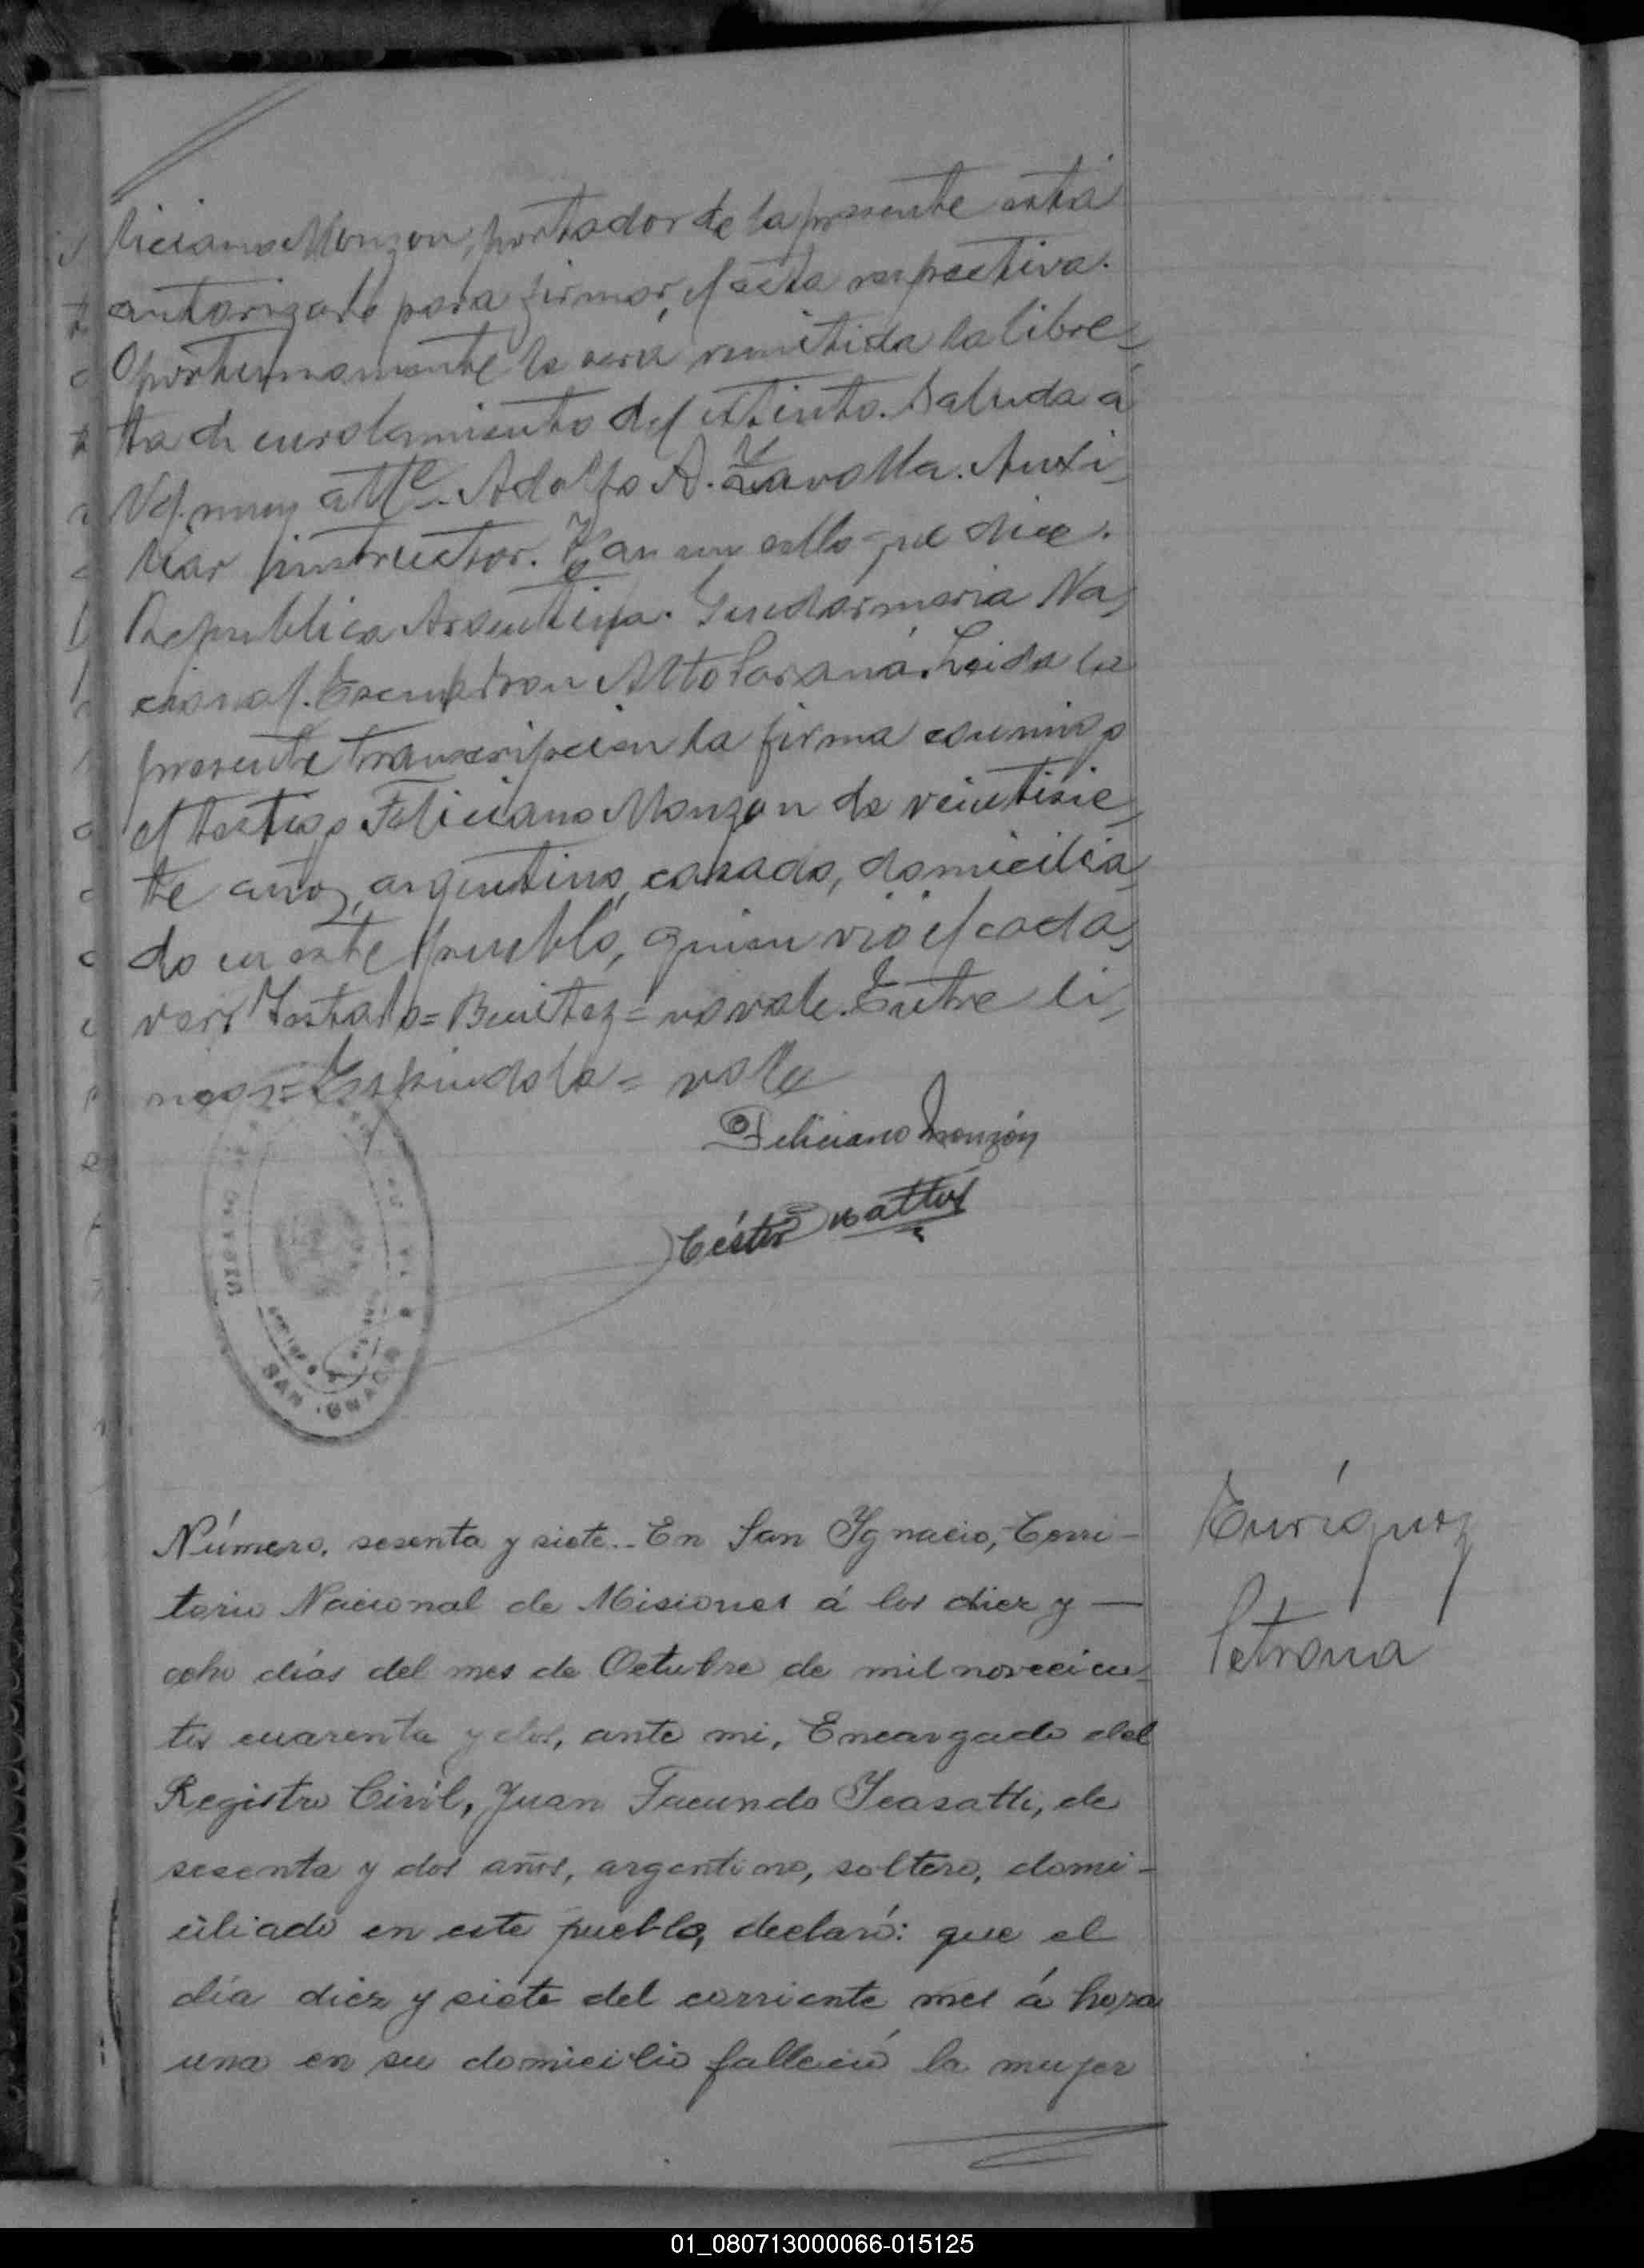 liciano Monzon, portador de la presente está
autorizado para firmar el acta respectiva.
Oportunamente le será remitida la libre-
ta de enrolamiento del extinto. Saluda á
Vd. muy atte. Adolfo A. Zavalla. Auxi-
liar instructor. Hay un sello que dice.
Republica Argentina. Gendarmeria Na-
cional. Escuadron Alto Paraná. Leida la
presente transcripcion la firma conmigo
el testigo Feliciano Monzon de veintisie-
te años, argentino, casado, domicilia-
do en este pueblo, quien vió el cada-
ver. Testado = Benitez = no vale. Entre li-
neas = Espindola = vale
Feliciano Monzón
SAN IGNACIO
Número, sesenta y siete.- En San Ygnacio, Terri-
torio Nacional de Misiones á los diez y —
ocho días del mes de Octubre de mil novecien-
tos cuarenta y dos, ante mi, Encargado del
Registro Civil, Juan Facundo Icasatti, de
sesenta y dos años, argentino, soltero, domi-
ciliado en este pueblo, declaró: que el
día diez y siete del corriente mes á hora
una en su domicilio falleció la mujer
Enríquez
Petrona
01_080713000066-015125